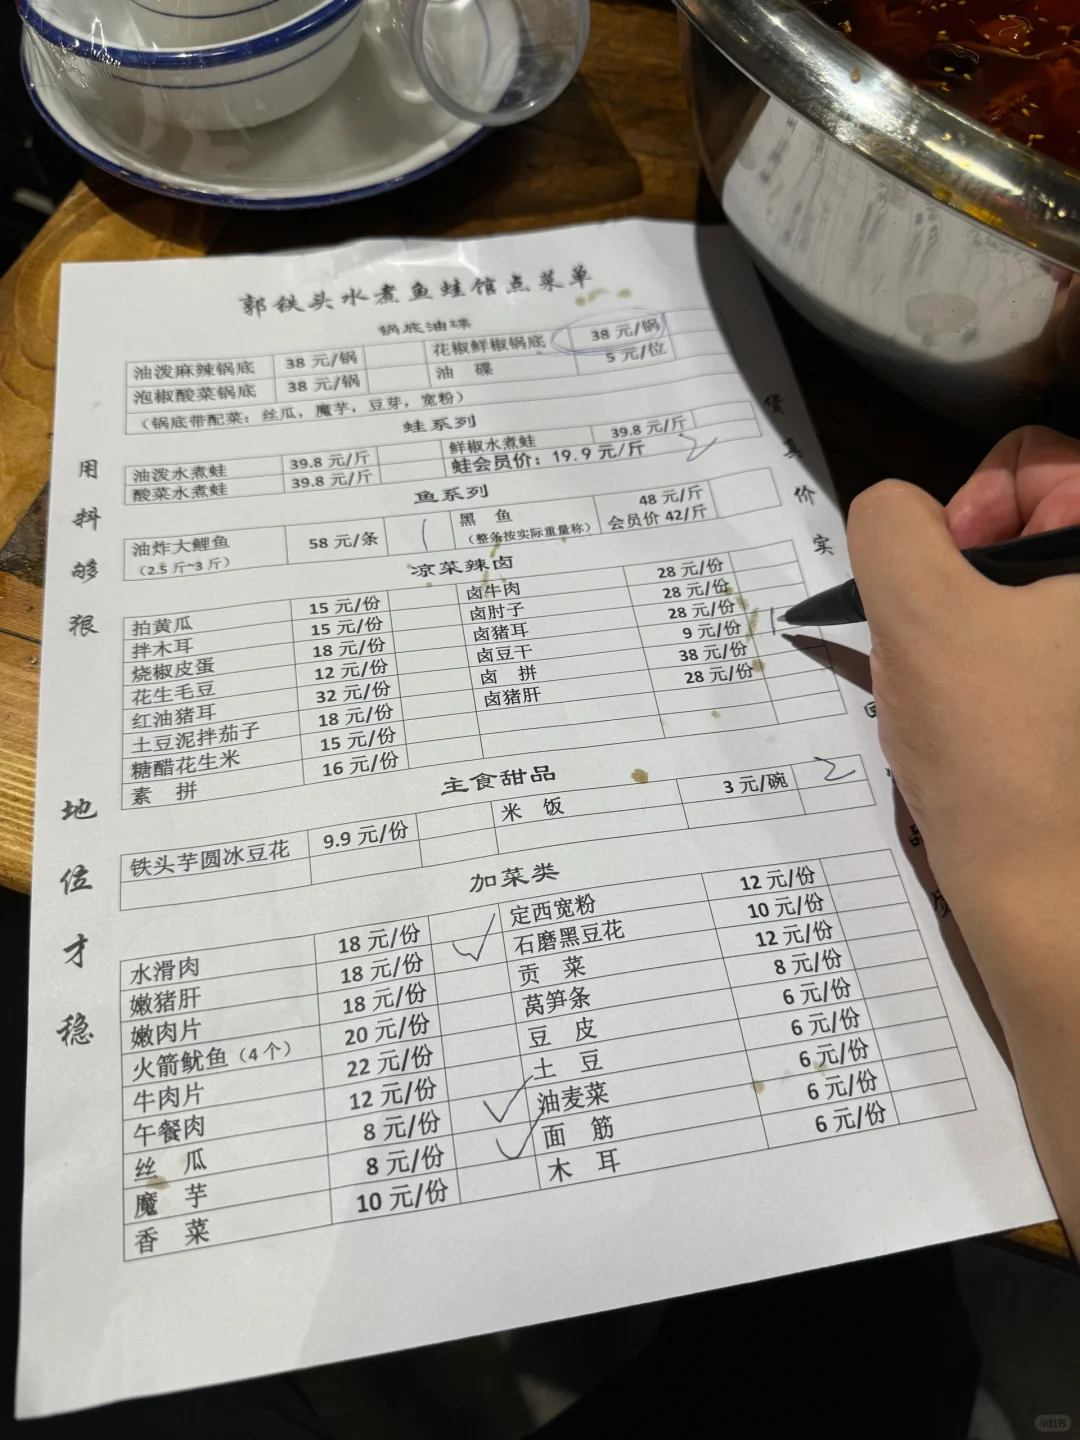 郭铁头水煮鱼蛙馆点菜单
锅底油碟
油泼麻辣锅底 38 元/锅 花椒鲜椒锅底 38 元/锅
泡椒酸菜锅底 38 元/锅 油 碟 5 元/位
（锅底带配菜：丝瓜，魔芋，豆芽，宽粉）
蛙系列
油泼水煮蛙 39.8 元/斤 鲜椒水煮蛙 39.8 元/斤
酸菜水煮蛙 39.8 元/斤 蛙会员价：19.9 元/斤 2
鱼系列
油炸大鲤鱼 58 元/条 1 黑 鱼 48 元/斤
（2.5 斤~3 斤） （整条按实际重量称） 会员价 42/斤
凉菜辣卤
拍黄瓜 15 元/份 卤牛肉 28 元/份
拌木耳 15 元/份 卤肘子 28 元/份
烧椒皮蛋 18 元/份 卤猪耳 28 元/份
花生毛豆 12 元/份 卤豆干 9 元/份 1
红油猪耳 32 元/份 卤 拼 38 元/份
土豆泥拌茄子 18 元/份 卤猪肝 28 元/份
糖醋花生米 15 元/份
素 拼 16 元/份
主食甜品
铁头芋圆冰豆花 9.9 元/份 米 饭 3 元/碗 2
加菜类
水滑肉 18 元/份 定西宽粉 12 元/份
嫩猪肝 18 元/份 石磨黑豆花 10 元/份
嫩肉片 18 元/份 贡 菜 12 元/份
火箭鱿鱼（4 个） 20 元/份 莴笋条 8 元/份
牛肉片 22 元/份 豆 皮 6 元/份
午餐肉 12 元/份 土 豆 6 元/份
丝 瓜 8 元/份 油麦菜 6 元/份
魔 芋 8 元/份 面 筋 6 元/份
香 菜 10 元/份 木 耳 6 元/份
用料够狠
地位才稳
货真价实
品质
小红书